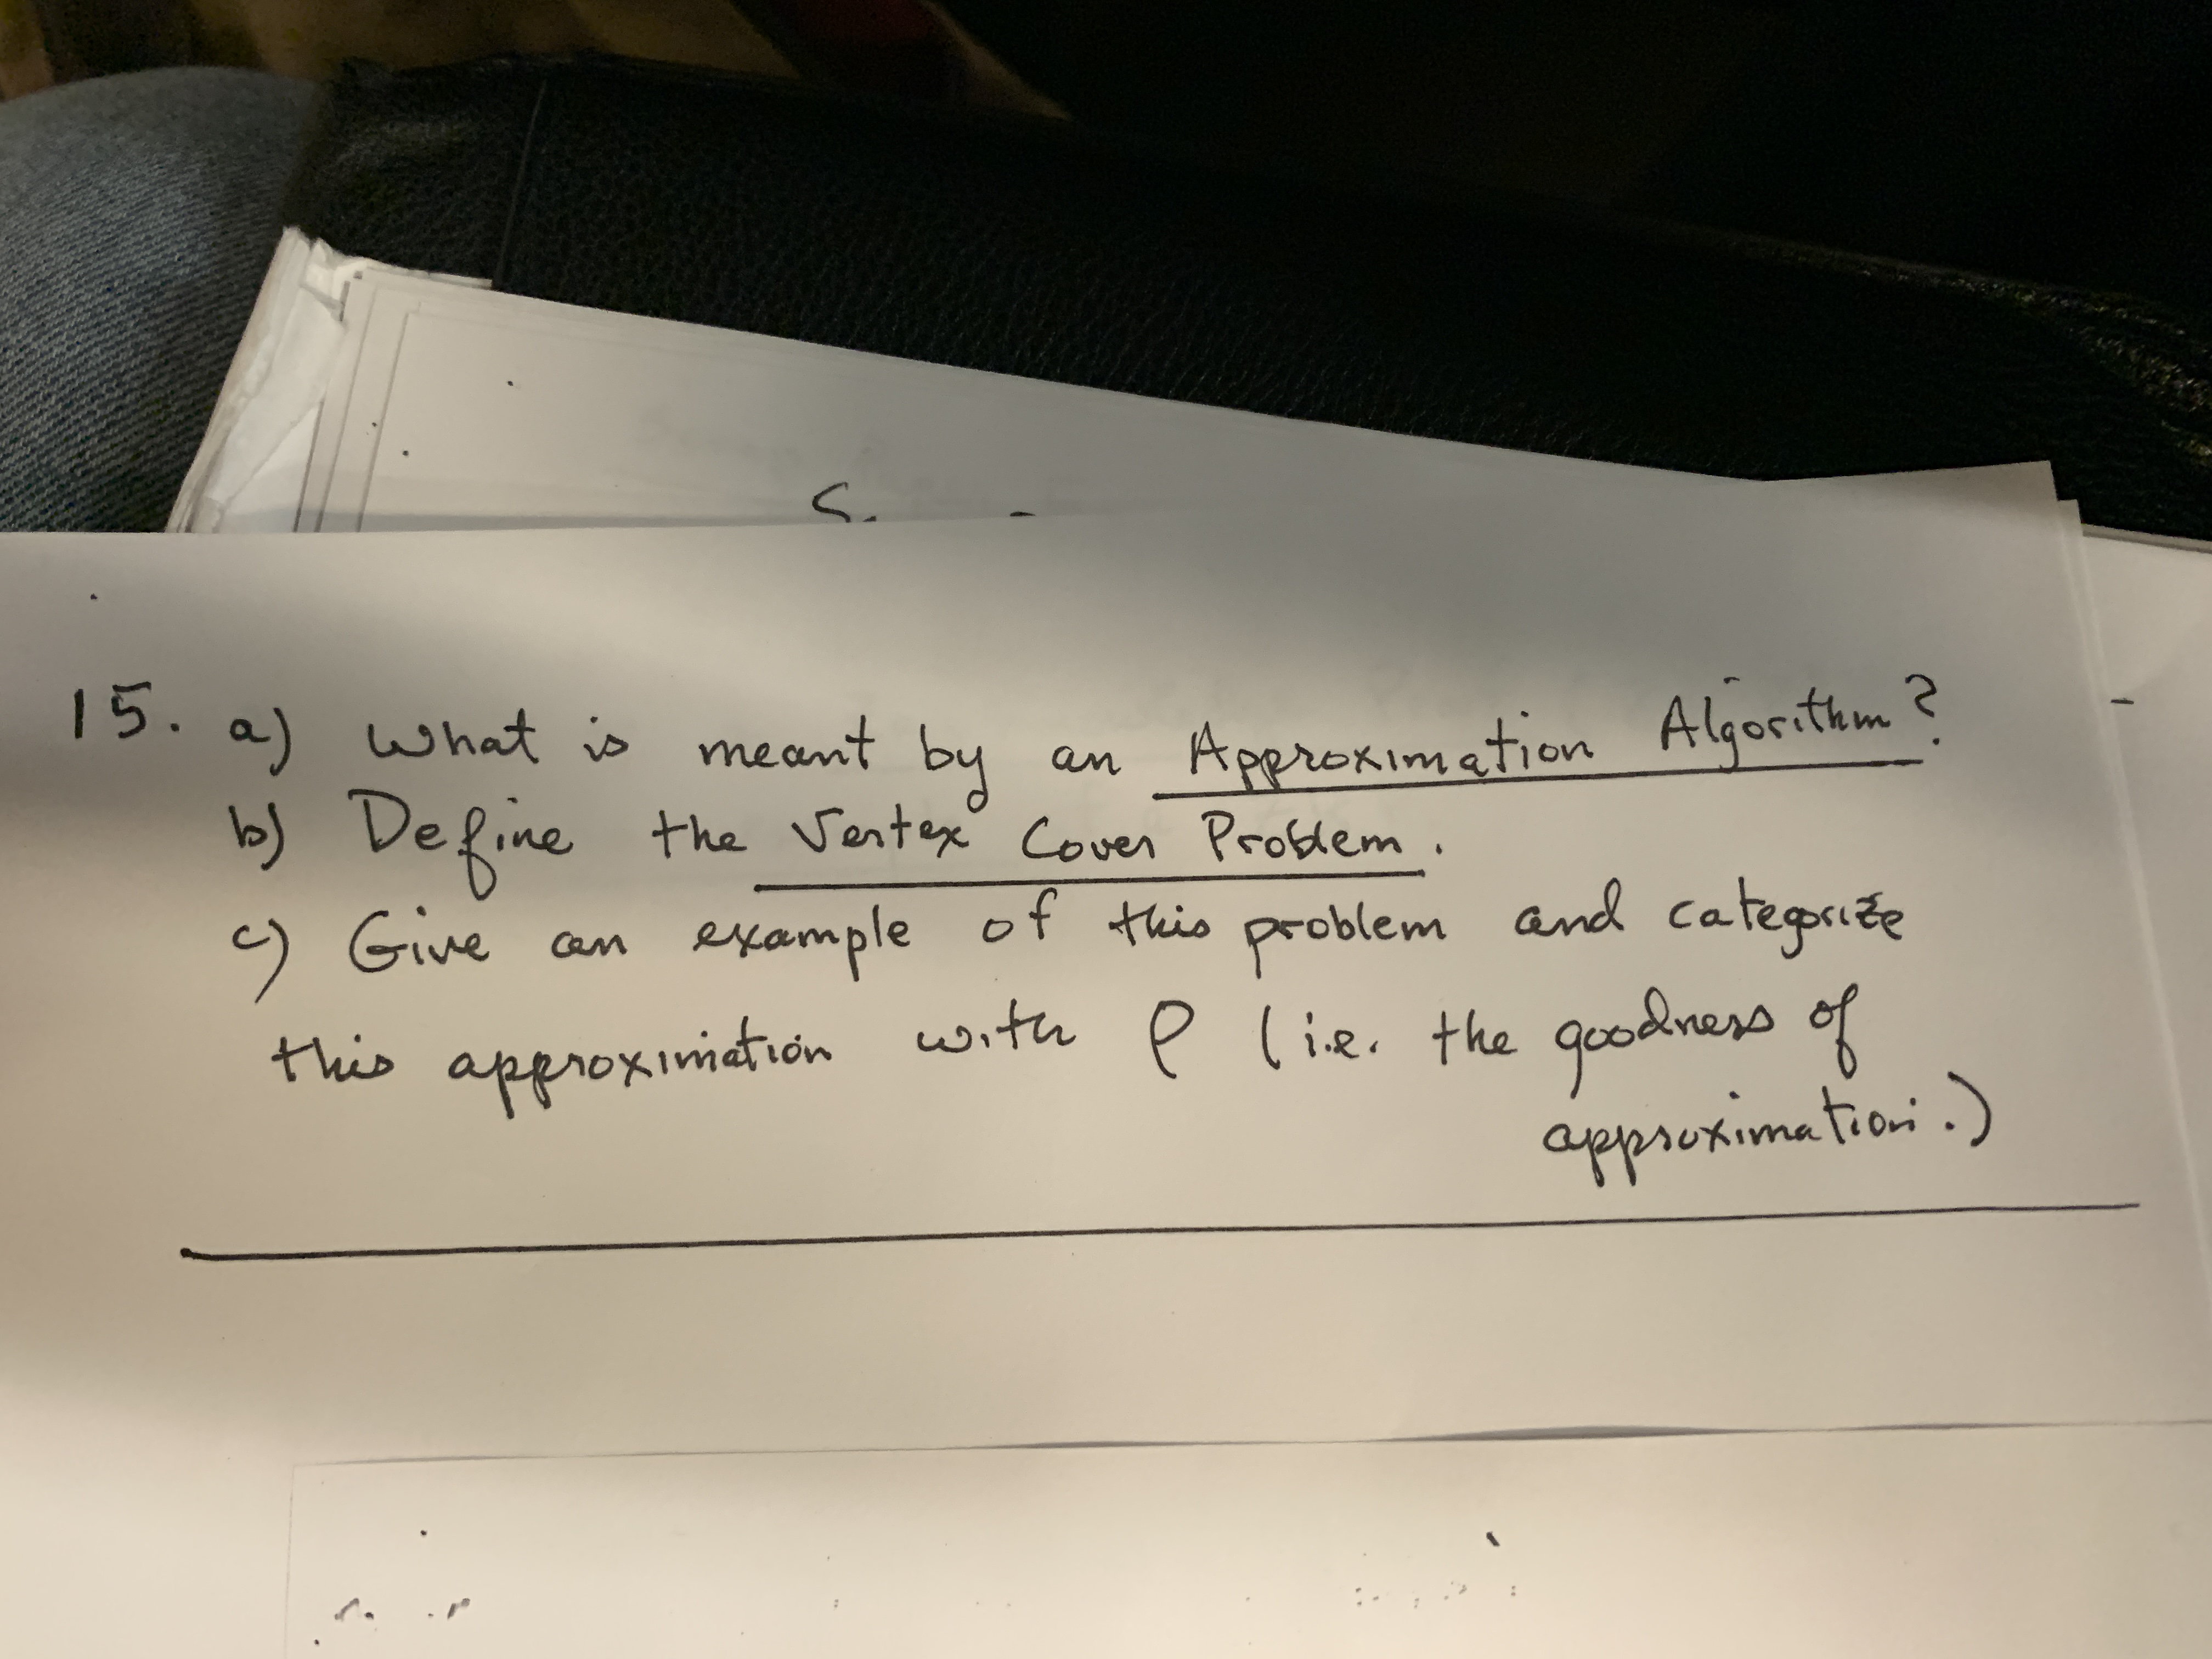 15. a) What is meant by an Approximation Algorithm?
b) Define the Vertex Cover Problem.
c) Give an example of this problem and categorize
this approximation with ρ (i.e. the goodness of
approximation.)